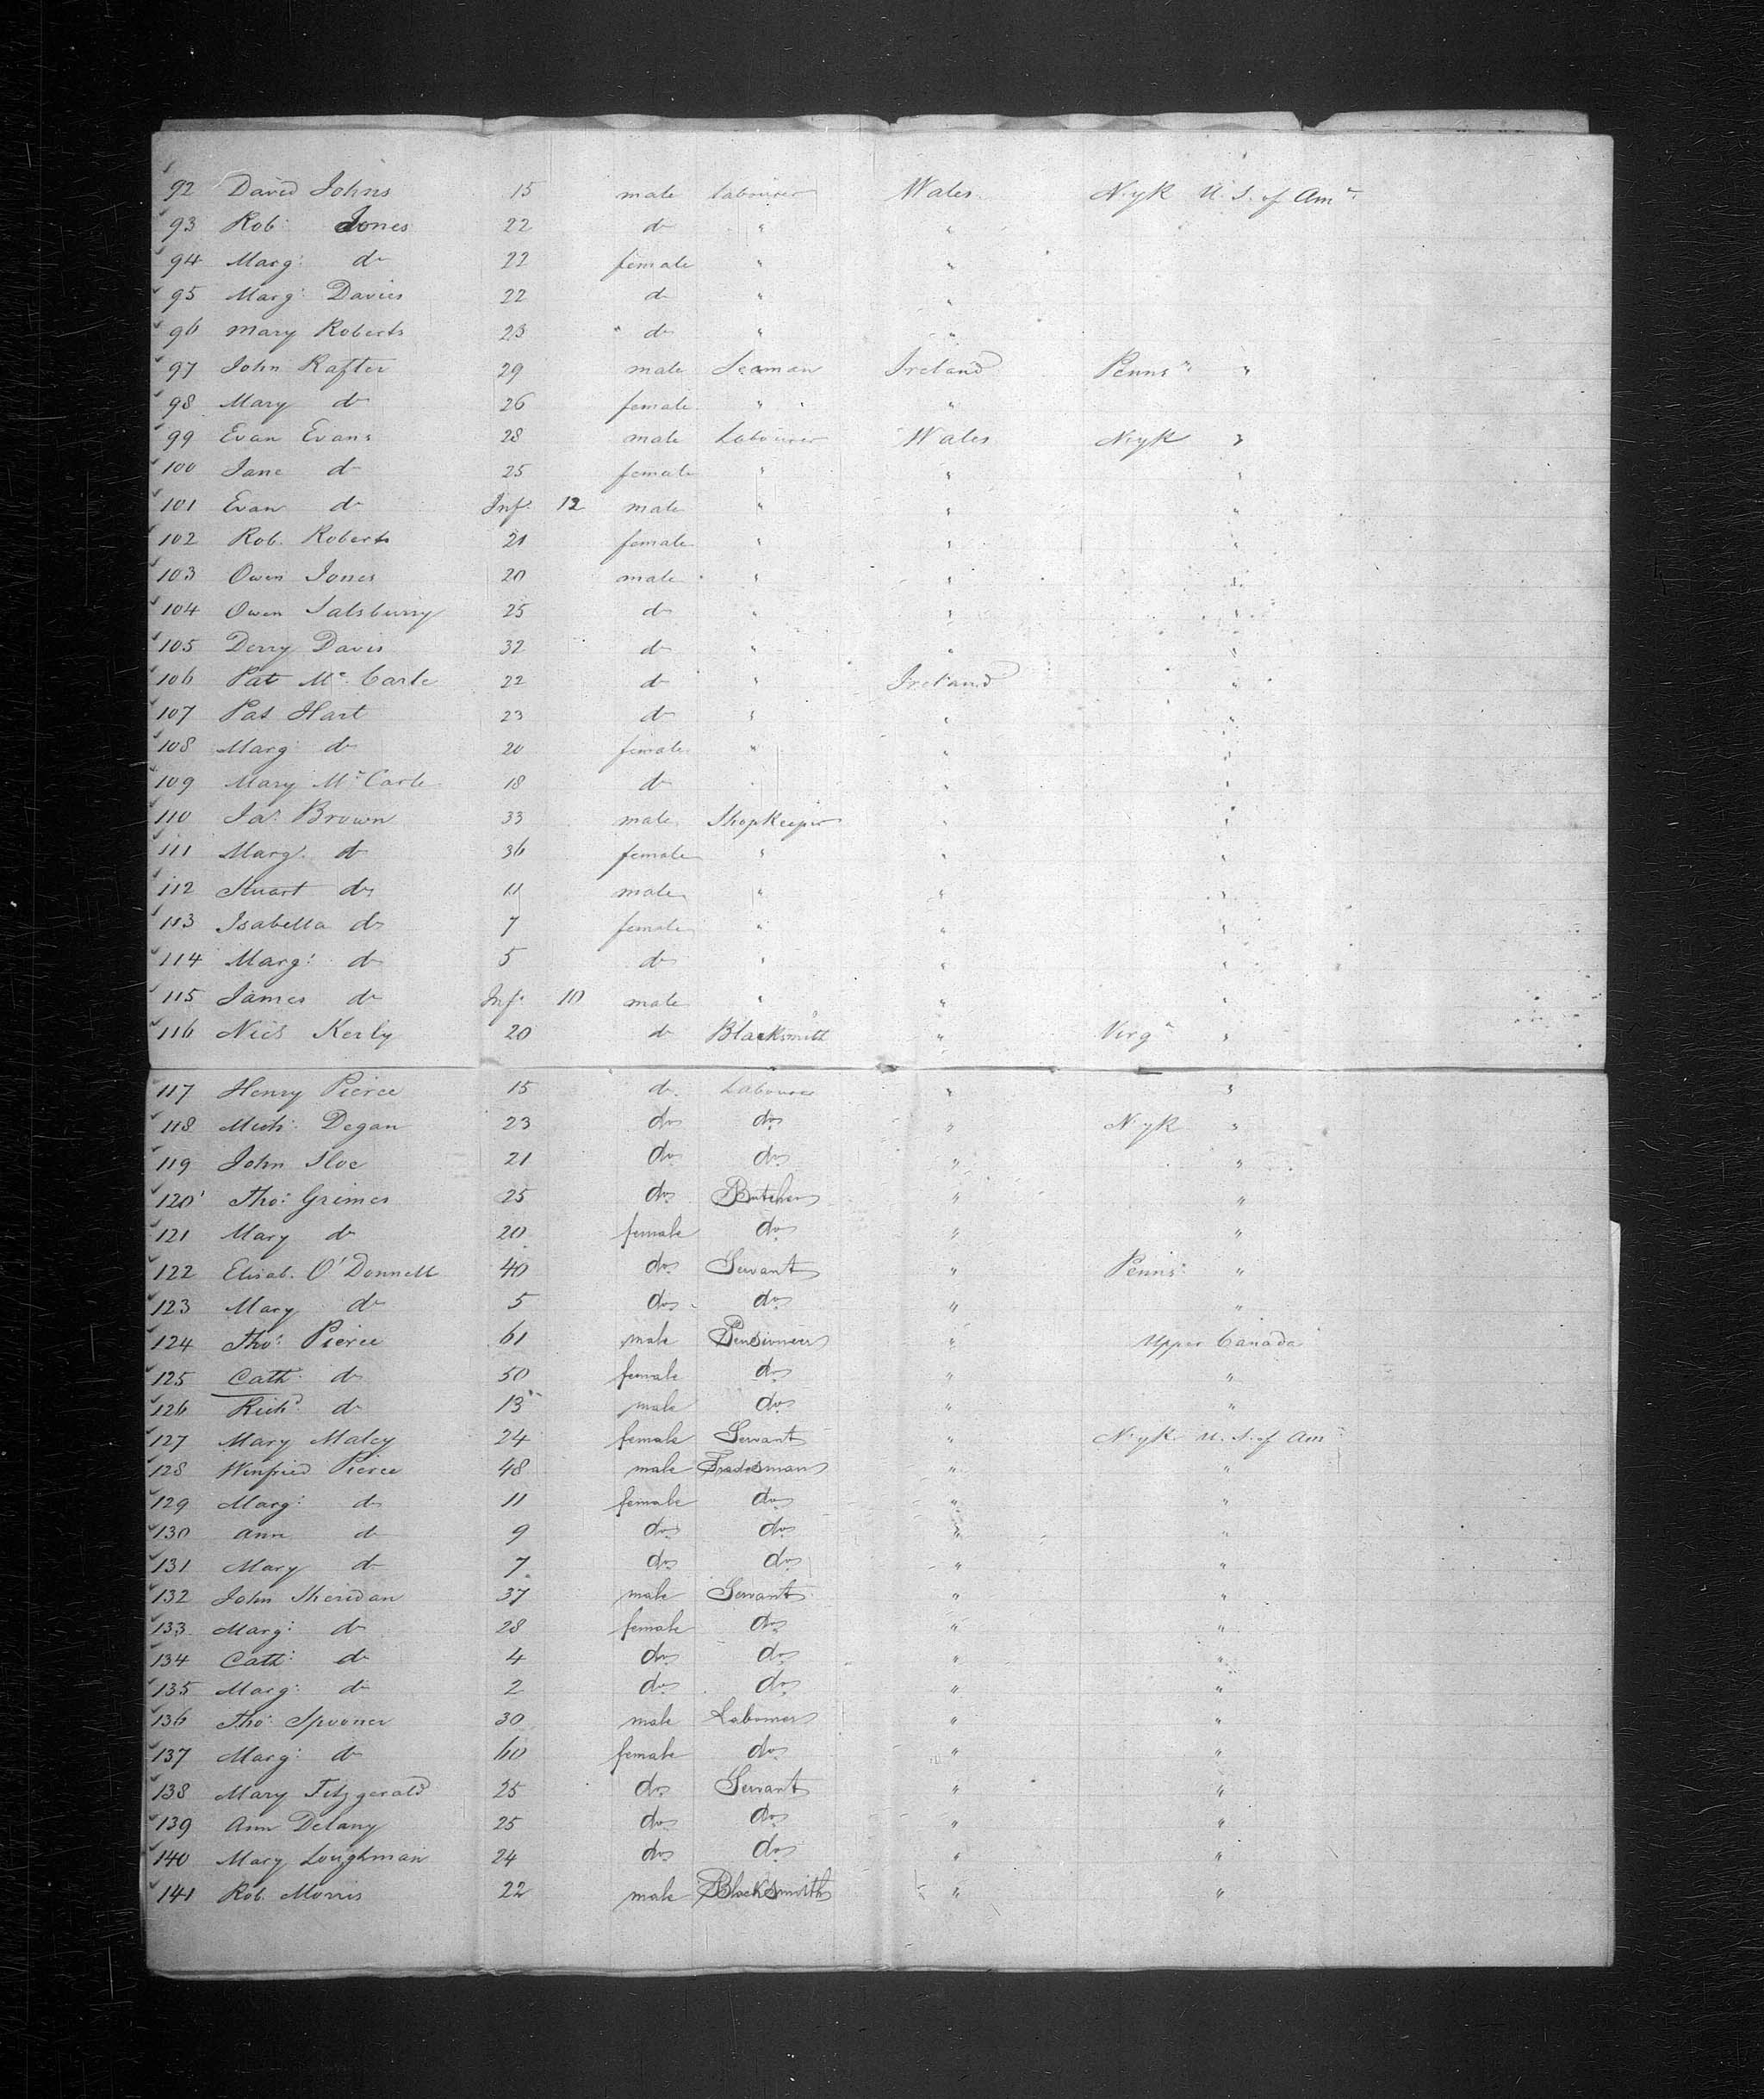 92 David Johns 15 male Labourer Wales N.yk U. S. of Amª
93 Rob: Jones 22 do " "
94 Marg: do 22 female " "
95 Marg: Davies 22 do " "
96 Mary Roberts 23 " do " "
97 John Rafter 29 male Seaman Ireland Pennsª "
98 Mary do 26 female " "
99 Evan Evans 28 male Labourer Wales N.yk "
100 Jane do 25 female " " "
101 Evan do Inf. 12 male " " "
102 Rob. Roberts 21 female " " "
103 Owen Jones 20 male " " "
104 Owen Salsburry 25 do " " "
105 Derry Davis 32 do " " "
106 Pat Mc. Carle 22 do " Ireland "
107 Pat Hart 23 do " " "
108 Marg: do 20 female " " "
109 Mary Mc Carle 18 do " " "
110 Jas. Brown 33 male Shopkeeper " "
111 Marg: do 36 female " " "
112 Stuart do 11 male " " "
113 Isabella do 7 female " " "
114 Marg: do 5 do " " "
115 James do Inf. 10 male " " "
116 Nics Kerly 20 do Blacksmith " Virgª "
117 Henry Pierce 15 do. Labourer " "
118 Mich: Degan 23 do do " N.yk "
119 John Sloe 21 do do " "
120 Tho: Grimes 25 do Butcher " "
121 Mary do 20 female do " "
122 Elisab. O'Donnell 40 do Servant " Penns: "
123 Mary do 5 do do " "
124 Tho: Pierce 61 male Pensioneer " Upper Canada
125 Cath: do 50 female do " "
126 Richd. do 13 male do " "
127 Mary Maley 24 female Servant " N.yk U. S. of Amª
128 Winfried Pierce 48 male Tradesman " "
129 Marg: do 11 female do " "
130 Ann do 9 do do " "
131 Mary do 7 do do " "
132 John Sheridan 37 male Servant " "
133 Marg: do 28 female do " "
134 Cath: do 4 do do " "
135 Marg: do 2 do do " "
136 Tho: Spooner 30 male Labourer " "
137 Marg: do 60 female do " "
138 Mary Fitzgerald 25 do Servant " "
139 Ann Delany 25 do do " "
140 Mary Loughman 24 do do " "
141 Rob. Morris 22 male Blacksmith " "